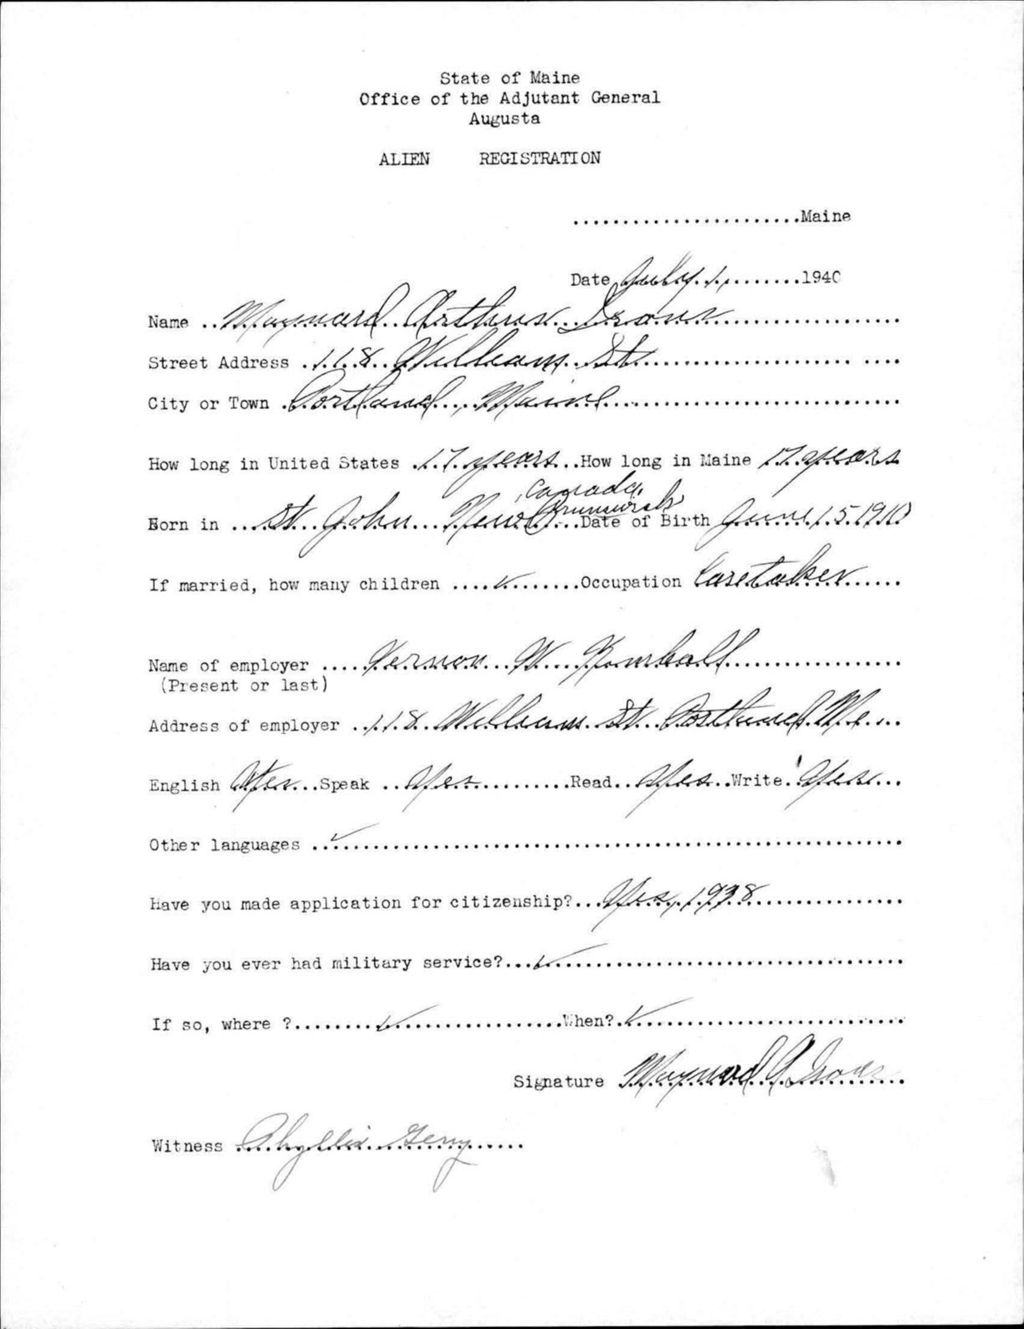 State of Maine
Office of the Adjutant General
Augusta
ALIEN REGISTRATION
.......................Maine
Date July 1, ........1940
Name .. Maynard Arthur Irons ..................
Street Address . 118 William St. .......................... ....
City or Town . Portland, Maine ..............................
How long in United States . 17 years ..How long in Maine 17 years
Canada,
Born in ... St. John New Brunswick Date of Birth June 15, 1910
If married, how many children ....✓........Occupation Caretaker......
Name of employer .... Vernon W. Kimball ..................
(Present or last)
Address of employer .. 118 William St. Portland Me. ..
English Yes...Speak .. Yes ..........Read.. Yes ..Write. Yes ...
Other languages ..✓................................................
Have you made application for citizenship?... Yes, 1938 ...............
Have you ever had military service?...✓...................................
If so, where ?........✓.................When?.✓..........................
Signature Maynard A Irons
Witness Phyllis Gerry .....